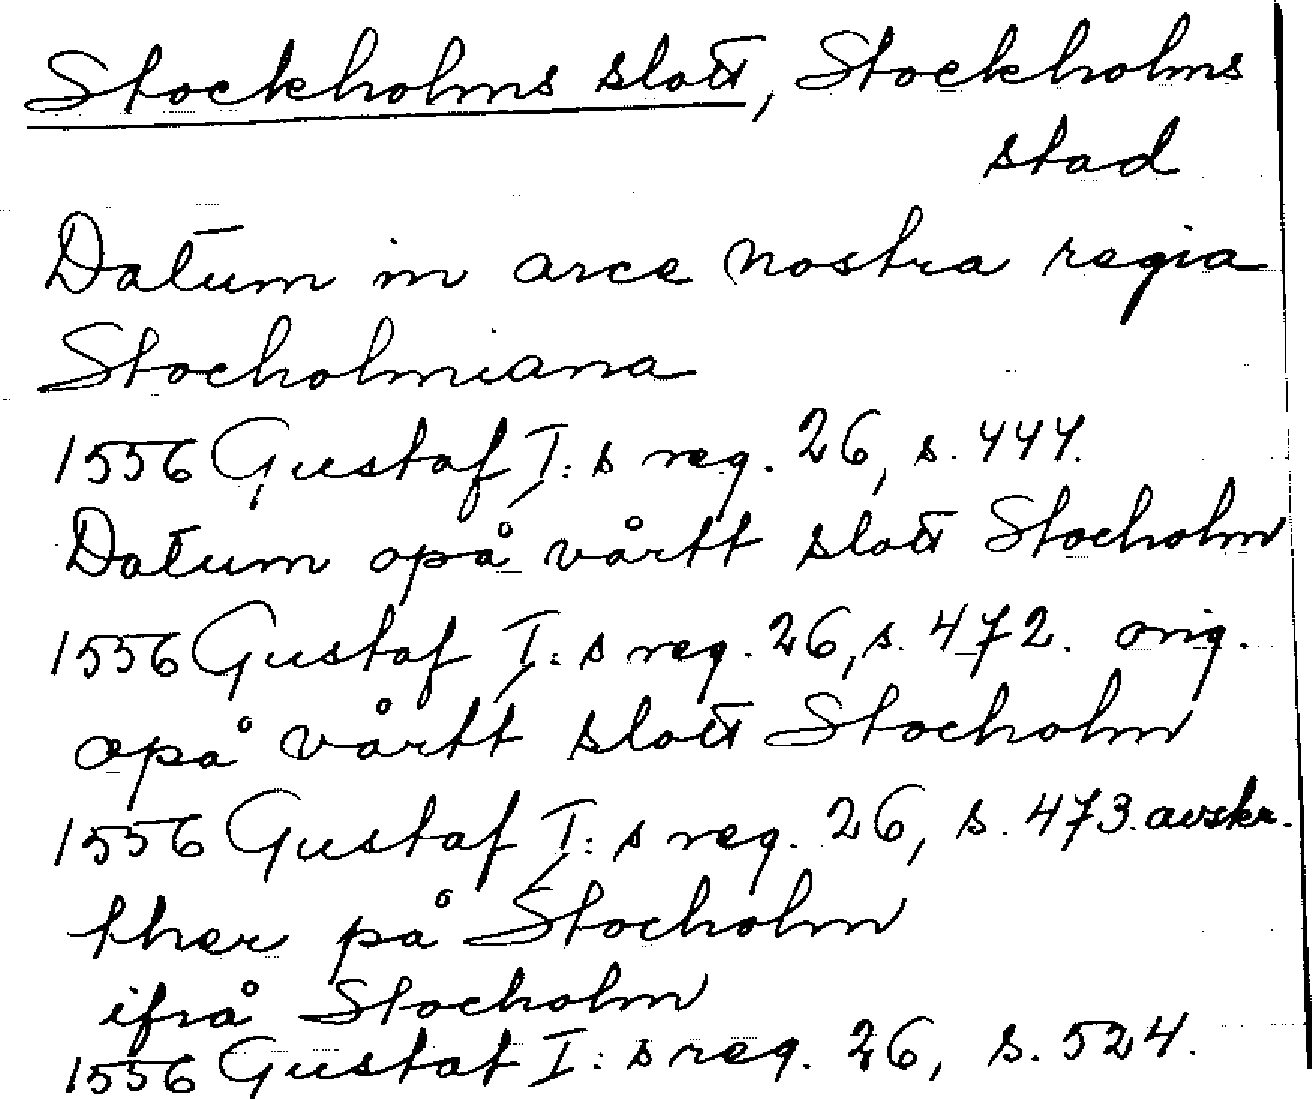 Stockholms slott, Stockholms
stad
Datum in arce nostra regia
Stocholmiana
1556 Gustaf I:s reg. 26, s. 444.
Datum opå vårtt slott Stocholm
1556 Gustaf I:s reg. 26, s. 472. orig.
opå vårtt slott Stocholm
1556 Gustaf I:s reg. 26, s. 473. avskr.
ther på Stocholm
ifrå Stocholm
1556 Gustaf I:s reg. 26, s. 524.